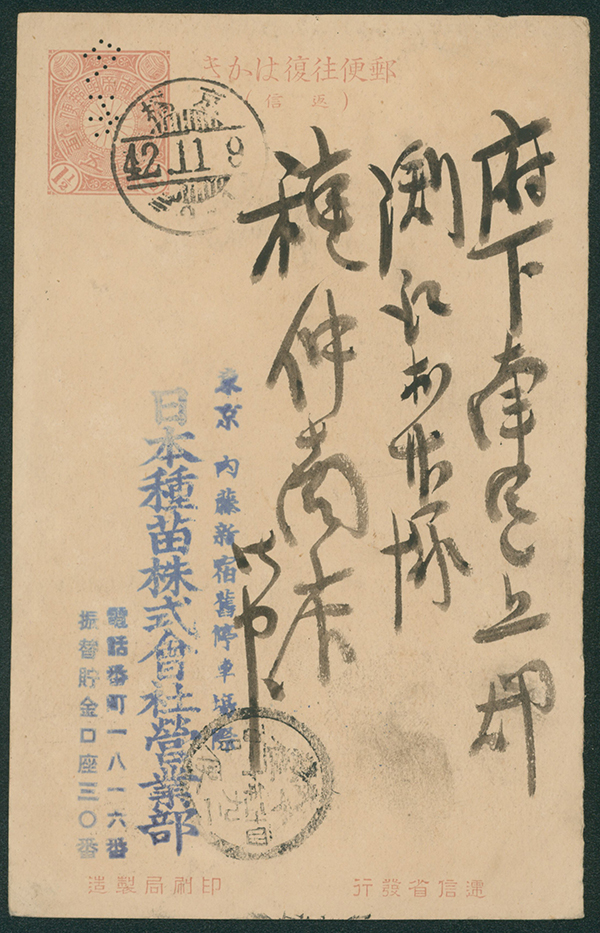 郵便往復はかき
(返信)
府下南足立郡
渕江村
種仲商店
御中
東京 内藤新宿舊停車場際
日本種苗株式會社營業部
電話番町一八一六番
振替貯金口座三〇番
42.11.9
1½
遞信省發行
印刷局製造